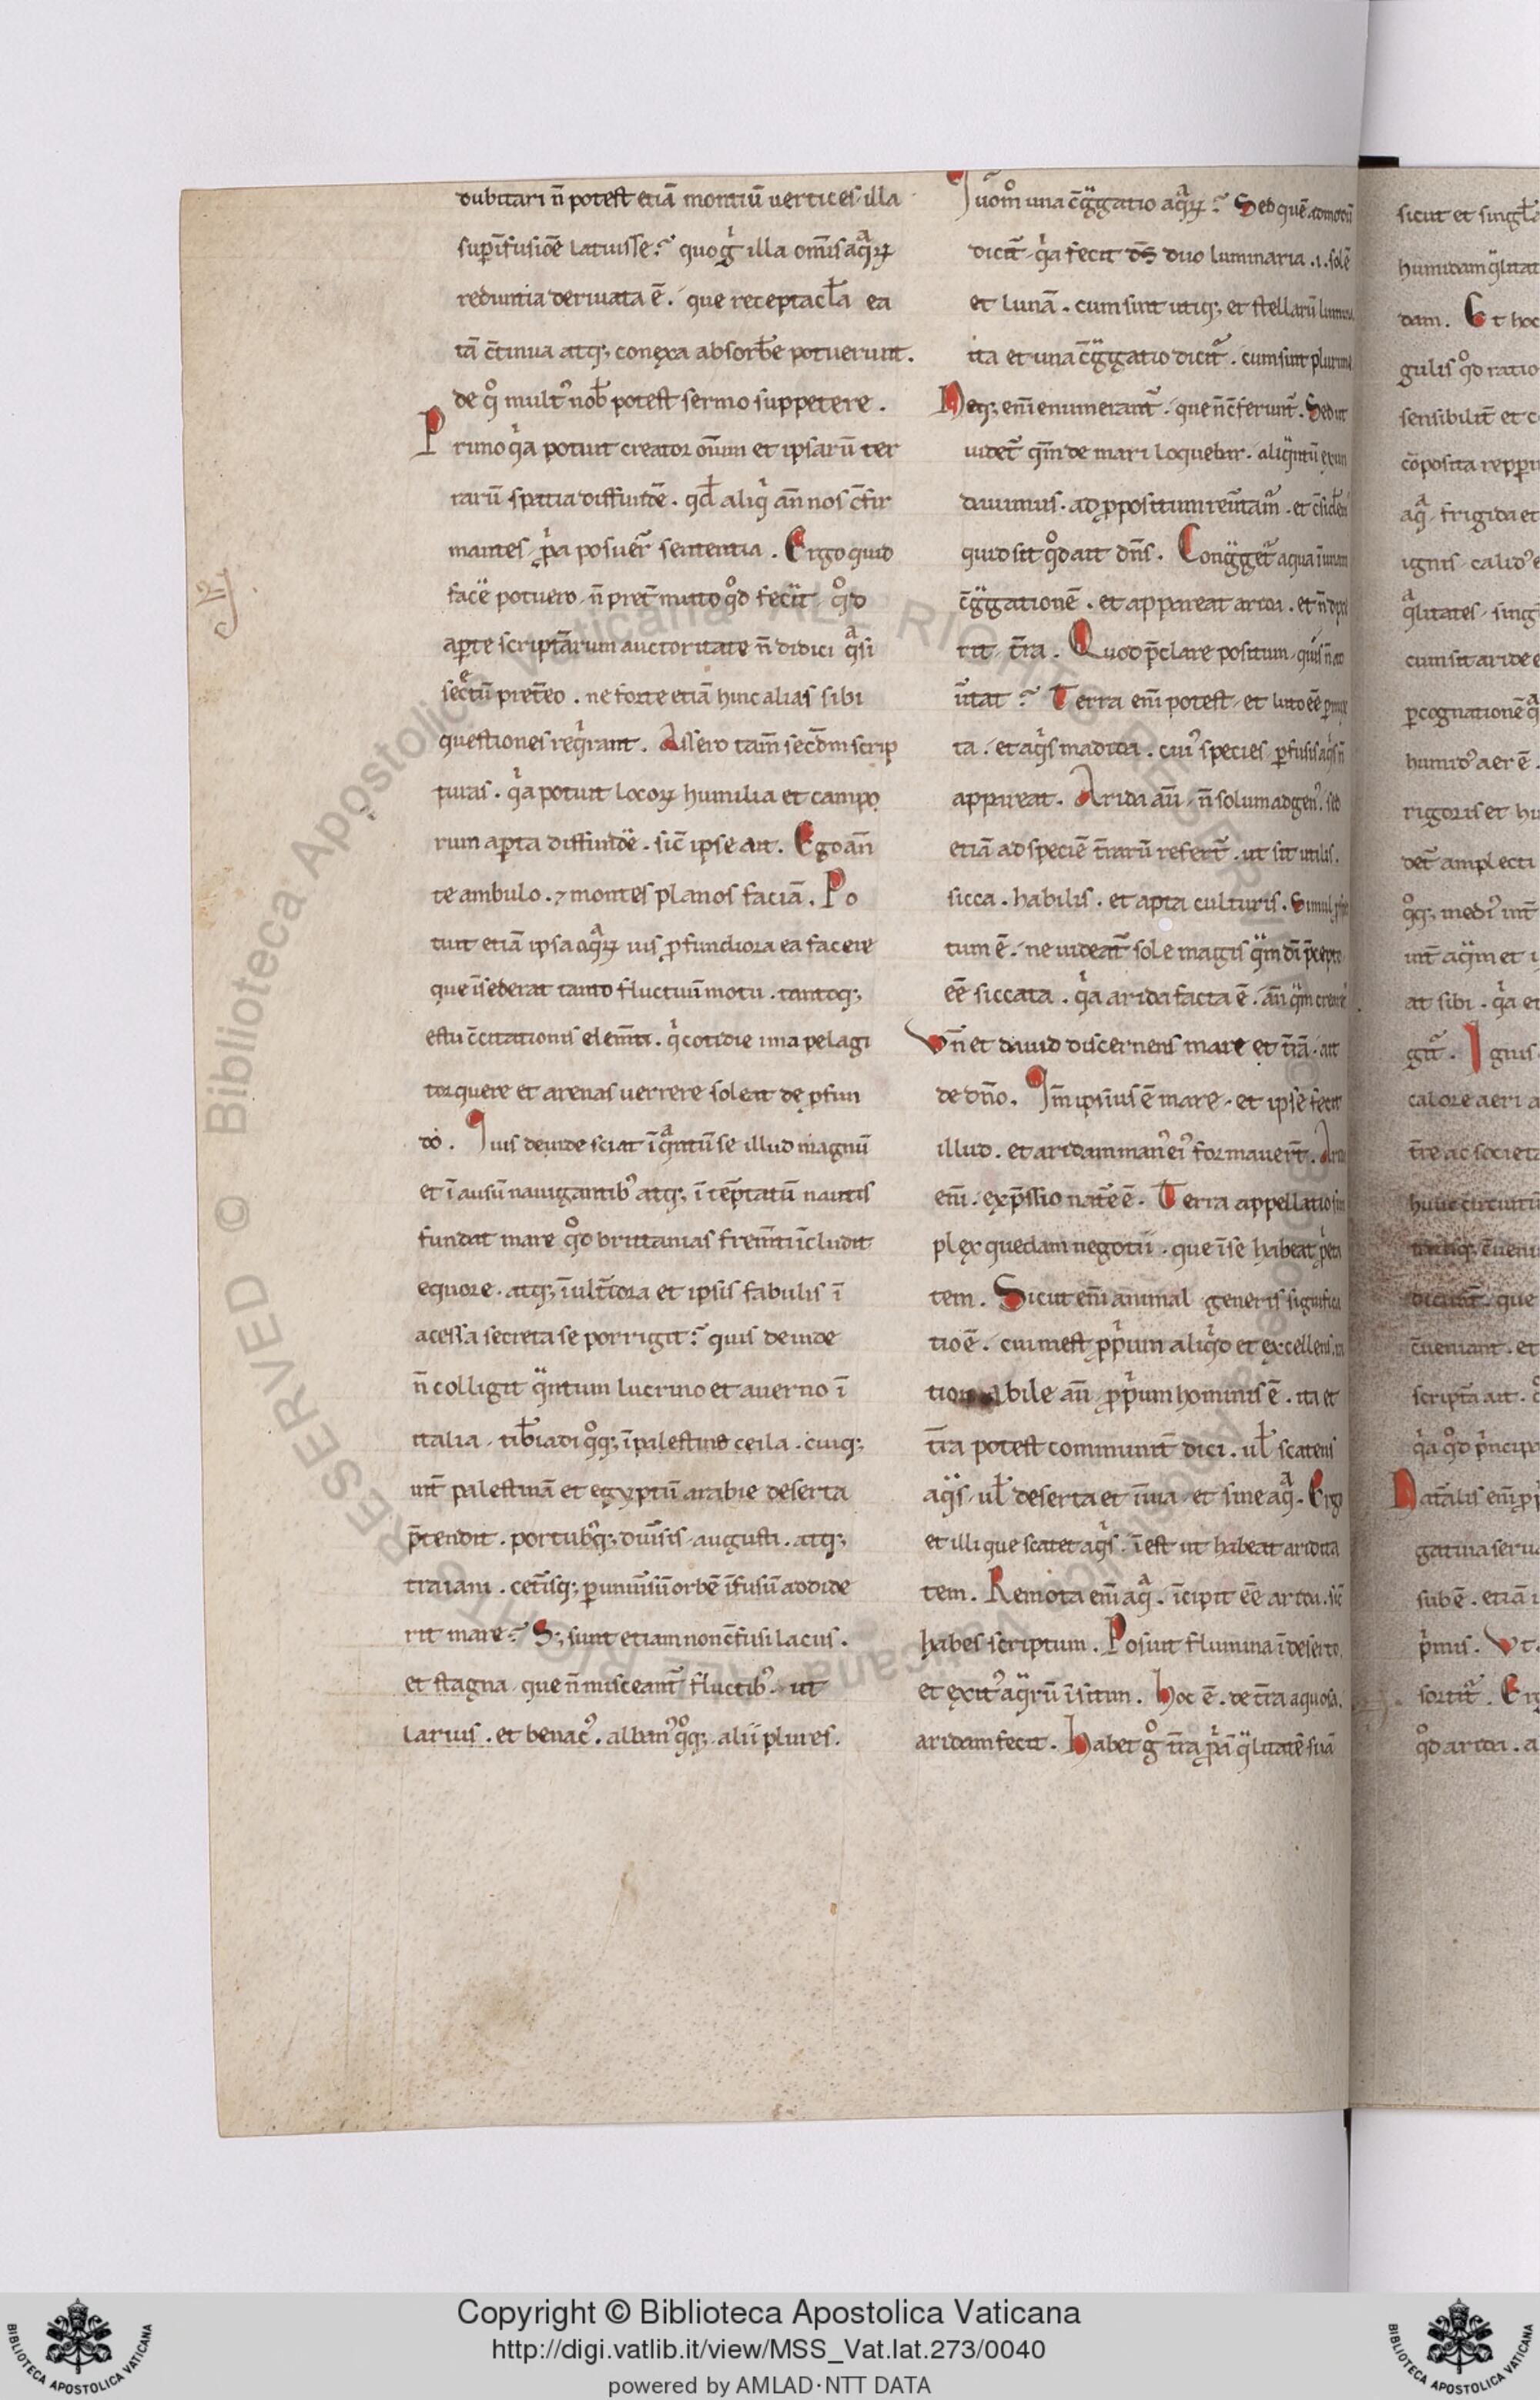 dubitari n̄ potest etiā montiū uertices illa
sup̄ifusiōe latuisse? quo gͥ illa om̄is aqͣꝝ
reduntia deriuata ē. que receptacl̄a ea
tā c̄tinua atq; conęxa absorb̄e potuerunt.
de qͦ mult᾽ nob̄ potest sermo suppetere.
Primo qͥa potuit creator om̄um et ipsarū ter
rarū spatia diffundē. qd̄ aliqͥ an̄ nos c̄fir
mantes ꝓpͥa posuer̄ sententia. Ergo quid
facē potuero n̄ pret̄mitto qͦd fecit qͦd
aperte scriptār̄um auctoritate n̄ didici qͣsi
secretū pret̄eo. ne forte etiā hinc alias sibi
questiones reqͥrant. Assero tam̄ secd̄m scrip
turas. qͥa potuit locoꝝ humilia et campo
rum aperta diffundē. sic̄ ipse ait. Ego an̄
te ambulo. ⁊ montes planos faciā. Po
tuit etiā ipsa aqͣꝝ uis ꝓfundiora ea facere
que īsederat tanto fluctuū motu. tantoq;
estu c̄citationis elem̄ti. qͥ cotidie ima pelagi
torquere et arenas uerrere solent de ꝓfun
do. Quis deinde sciat ī qͣntū se illud magnū
et ī ausū nauigantib᾽ atq; ī tēptatū nautis
fundat mare qͦd brittanias frem̄ti īcludit
equore. atq; ī ult̄iora et ipsis fabulis ī
acessa secreta se porrigit? quis deinde
n̄ colligit qͣntum lucrino et auerno ī
italia. tib̄iadi qͦq; ī palestine ceila. cuiq;
int̄ palestinā et egyptū arabie deserta
p̄tendit. portub᾽q; diuīsis augusti. atq;
traiani. cet̄isq; ꝑ uniūsū orbē īfusū addide
rit mare? S; sunt etiam non c̄fusi lacus.
et stagna que n̄ misceant᷑ fluctib᾽. ut
larius. et benac᾽. alban᾽ qͦq; alii plures.
Quom̊ una c̄gͣgatio aqͣꝝ? Sed quē admodū
dicit᷑ qͥa fecit ds̄ duo luminaria .i. solē
et lunā. cum sint utiq; et stellarū lumina
ita et una c̄gͣgatio dicit᷑. cum sint plurime
Neq; eni᷑ enumerant᷑. que n̄ c̄ferunt᷑. Sed ut
uidet᷑ qm̄ de mari loquebar. aliqͣntū exun
dauimus. ad ꝓpositum reūtam᷑. et c̄siderem᷑
quid sit qͦd ait dn̄s. Congͣget᷑ aqua ī unam
c̄gͣgationē. et appareat arida. et n̄ dixe
rit t̄ra. Quod p̄clare positum quis n̄ ad
ūtat? Terra eni᷑ potest et luto eē ꝑmix
ta. et aqͥs madida. cui᾽ species ꝑfusis aqͥs n̄
appareat. Arida aū n̄ solum ad gen᾽. sed
etiā ad speciē t̄rarū refert᷑. ut sit utilis.
sicca. habilis. et apta culturis. Simul
tum ē. ne uideat᷑ sole magis qͣm dī p̄cepto
eē siccata. qͥa arida facta ē. an̄ qͣm
Vn̄ et dauid discernens mare et t̄rā. ait
de dn̄o. Qm̄ ipsius ē mare. et ipse fecit
illud. et aridam man᾽ ei᾽ formauer̄t. Arida
eni᷑. exp̄ssio nat̄e ē. Terra appellatio sim
plex quedam negotii. que ī se habeat
tem. Sicut eni᷑ animal generis significa
tio ē. cui inest ꝓpͥum aliqͥd et excellens. ra
tionabile aū ꝓpͥum hominis ē. ita et
t̄ra potest communit̄ dici. ul̄ scatens
aqͥs. ul̄ deserta et īuia et sine aqͣ. Ergo
et illi que scatet aqͥs. īest ut habeat aridita
tem. Remota eni᷑ aqͣ. īcipit eē arida. sic̄
habes scriptum. Posuit flumina ī deserto.
et exit᾽ aqͣrū ī sitim. hoc ē. de t̄ra aquosa.
aridam fecit. habet gͦ t̄ra ꝓpͥā qͣlitatē suā
sicut et singl̄a
humidam qͣlitat
dam. Et hoc
gulis qͦd ratio
sensibilit̄ et c
cōposita repperi
aqͣ. frigida et
ignis. calid᾽ e
qͣlitates. sing
cum sit aride e
ꝑ cognationē qͣ
humid᾽ aer ē.
rigoris et hu
det᷑ amplecti
qͦq; medi᾽ int̄
int̄ aqͣm et i
at sibi. qͥa et
git᷑. Ignis
calore aeri a
t̄re ac societa
hunc circuitū
ueni
dicunt᷑. que
c̄ueniant. et
scriptā ait.
qͥa qͦd pͥncipa
Nat̄alis eni᷑
gatiua serua
sub ē. etiā i
pͥmis. Vt
sortit᷑. Erg
qͦd arida. a
Copyright © Biblioteca Apostolica Vaticana
http://digi.vatlib.it/view/MSS_Vat.lat.273/0040
powered by AMLAD·NTT DATA
BIBLIOTECA APOSTOLICA VATICANA
BIBLIOTECA APOSTOLICA VATICANA